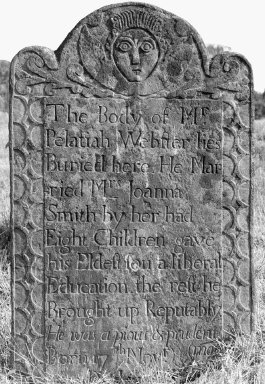 The Body of Mr
Pelatiah Webster lies
Buried here He Mar
ried Mrs Joanna
Smith by her had
Eight Children gave
his Eldest son a liberal
Education the rest he
Brought up Reputably
He was a pious & prudent
Born 17th Novr